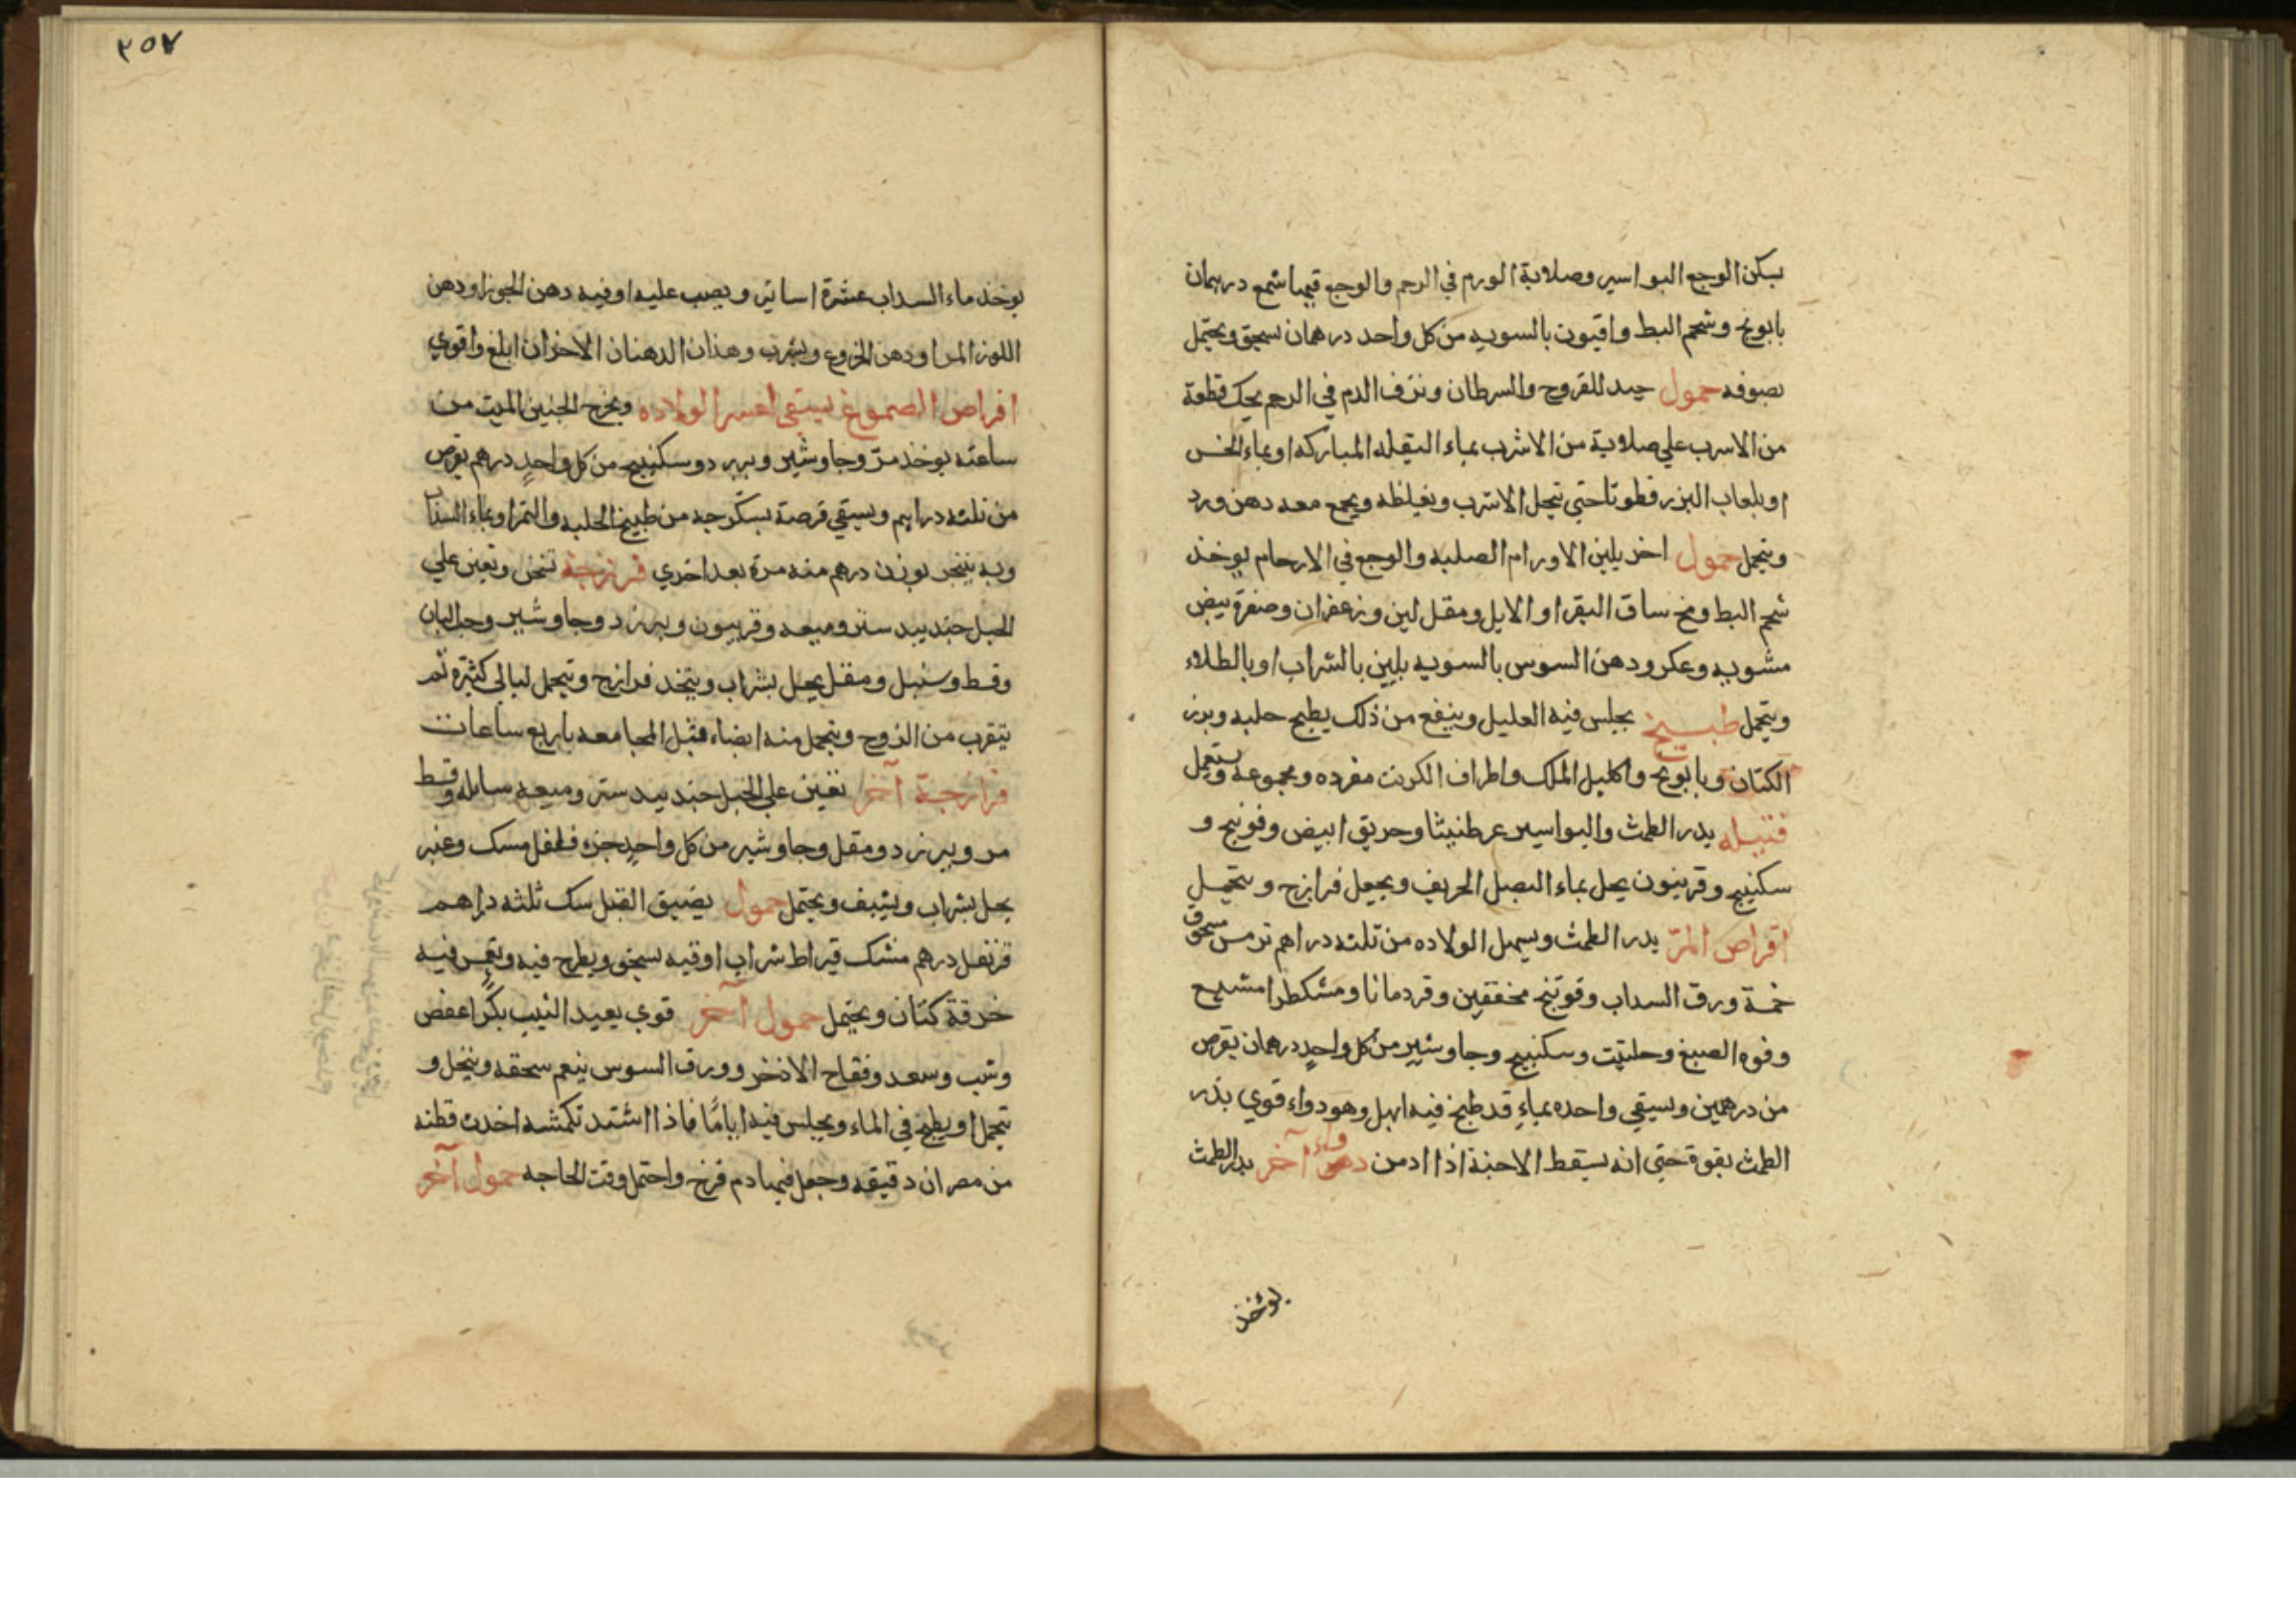 يسكن الوجع البواسير وصلابة الورم في الرحم والوجع قيميا شمع درهمان
بابونج وشحم البط وافيون بالسويه من كل واحد درهمان يسحق ويحتمل
بصوفه حمول جيد للقروح والسرطان ونزف الدم في الرحم يحك قطعة
من الاسرب علي صلابة من الاشرب بماء البقله المباركه او بماء الخس
او بلعاب البزر قطونا حتي ينحل الاسرب ويغيلظه ويجمع معه دهن ورد
ويتحمل حمول اخر يلين الاورام الصلبه والوجع في الارحام يوخذ
شحم البط ومخ ساق البقر او الايل ومقل لين وزعفران وصفرة بيض
مشويه وعكر ودهن السوس بالسويه يلين بالشراب او بالطلاء
ويتحمل طبيخ يجلس فيه العليل وينفع من ذلك يطبخ حلبه وبزر
الكتان وبابونج واكليل الملك واطراف الكرنب مفرده ومجموعه ويستعمل
فتيله يدر الطمث والبواسير عرطنيثا وحريق ابيض وفوتنج و
سكبينج وقربيون يحل بماء البصل الحريف ويجعل فرازج ويتحمل
اقراص المرّ يدر الطمث ويسهل الولاده من ثلثه دراهم ترمس مسحوق
خمسة ورق السداب وفوتنج مخففين وقردمانا ومشكطرامشيع
وفوه الصبغ وحلتيت وسكبينج وجاوشير من كل واحدٍ درهمان يقرص
من درهمين ويسقي واحده بماءٍ قد طبخ فيه ابهل وهو دواء قوي يدر
الطمث بقوة حتي انه يسقط الاجنة اذا ادمن دواء آخر يدر الطمث
يوخذ
٢٥٧
يوخذ ماء السداب عشرة اساتير ويصب عليه اوقيه دهن الجوز او دهن
اللوز المر او دهن الخروع ويشرب وهذان الدهنان الاخران ابلغ واقوي
اقراص الصموغ يسقي لعسر الولاده ويخرج الجنين الميت من
ساعته يوخذ مرّ وجاوشير وبيرزد وسكبينج من كل واحدٍ درهم يقرص
من ثلثه دراهم ويسقي قرصة بسكرجه من طبيخ الحلبه والتمر او بماء السداب
وبه يتبخر بوزن درهم منه مرة بعد اخري فرزجة تسخن وتعين علي
الحبل جندبيدستر وميعه وقربيون وبيرزد وجاوشير وحب البان
وقسط وسنبل ومقل يحل بشراب ويتخذ فرازج ويتحمل ليالي كثيرة ثم
يتقرب من الزوج ويتحمل منه ايضاء قبل المجامعه باربع ساعات
فرازجة آخر تعين علي الحبل جندبيدستر وميعه سايله وقسط
مر وبيرزد ومقل وجاوشير من كل واحدٍ جزء فلفل مسك وعنبر
يحل بشراب ويشيف ويحتمل حمول يضيق القبل سك ثلثه دراهم
قرنفل درهم مشك قيراط شراب اوقيه يسخن ويطرح فيه ويغمس فيه
خرقة كتان ويحتمل حمول آخر قوي يعيد الثيب بكرًا عفص
وشب وسعد وفقاح الاذخر وورق السوس ينعم سحقه وينخل و
يتحمل او يطبخ في الماء ويجلس فيه اياماً فاذا اشتد تكمشه اخذت قطنه
من مصران دقيقه وجعل فيها دم فرخ واحتمل وقت الحاجه حمول آخر